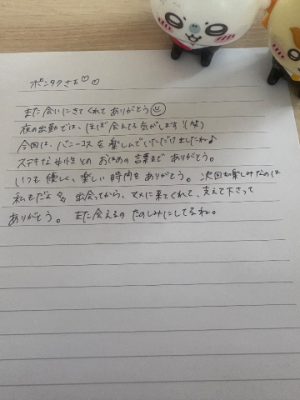 ポンタクさま♡
また会いにきてくれてありがとう
夜の出勤では、ほぼ会えてる気がします!(笑)
今回は、バニーコスを楽しんでいただけましたね♪
ステキな お住まいの言葉まで ありがとう。
いつも優しく、楽しい時間をありがとう。次回も楽しみなのは
私もだよ 出会ってから、マメに来てくれて、支えて下さって
ありがとう。 また会えるの たのしみにしてるね。